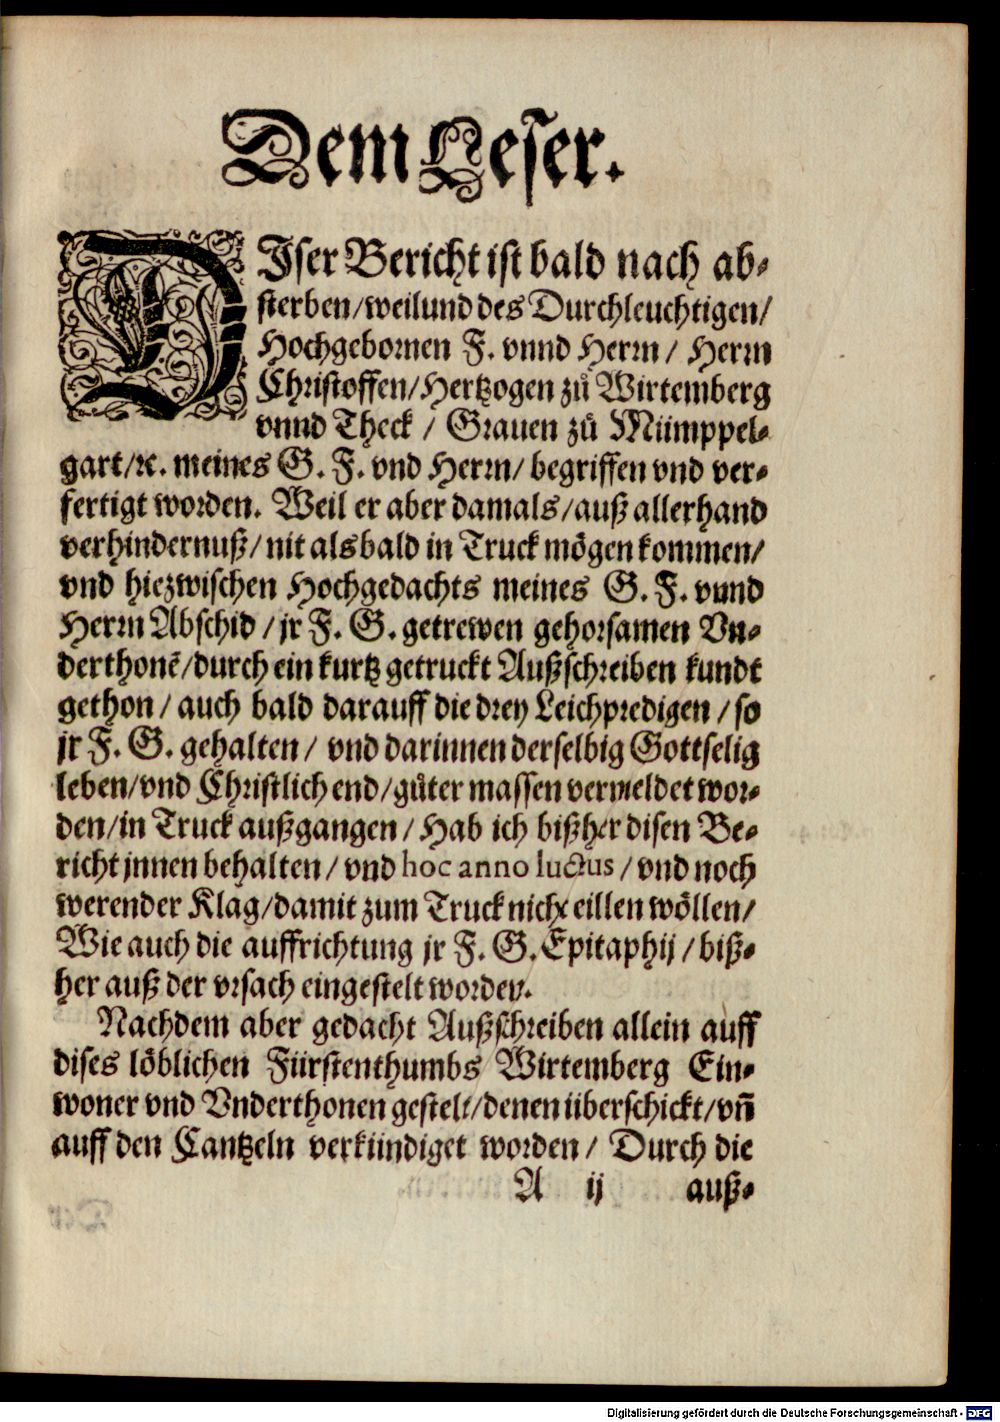 Dem Leser.
DIser Bericht ist bald nach ab-
sterben/weilund des Durchleuchtigen/
Hochgebornen F. vnnd Herrn/ Herrn
Christoffen/Hertzogen zů Wirtemberg
vnnd Theck / Grauen zů Mümppel-
gart/ꝛc. meines G. F. vnd Herrn/ begriffen vnd ver-
fertigt worden. Weil er aber damals/auß allerhand
verhindernuß/nit alsbald in Truck mögen kommen/
vnd hiezwischen Hochgedachts meines G. F. vnnd
Herrn Abschid /jr F. G. getrewen gehorsamen Vn-
derthonē/durch ein kurtz getruckt Außschreiben kundt
gethon/ auch bald darauff die drey Leichpredigen /so
jr F. G. gehalten/ vnd darinnen derselbig Gottselig
leben/vnd Christlich end/gůter massen vermeldet wor-
den/in Truck außgangen/ Hab ich bißher disen Be-
richt jnnen behalten/ vnd hoc anno luctus/vnd noch
werender Klag/damit zum Truck nicht eillen wöllen/
Wie auch die auffrichtung jr F. G. Epitaphij/ biß-
her auß der vrsach eingestelt worden.
Nachdem aber gedacht Außschreiben allein auff
dises löblichen Fürstenthumbs Wirtemberg Ein-
woner vnd Vnderthonen gestelt/denen überschickt/vñ
auff den Cantzeln verkündiget worden/ Durch die
A ij auß-
Digitalisierung gefördert durch die Deutsche Forschungsgemeinschaft - DFG